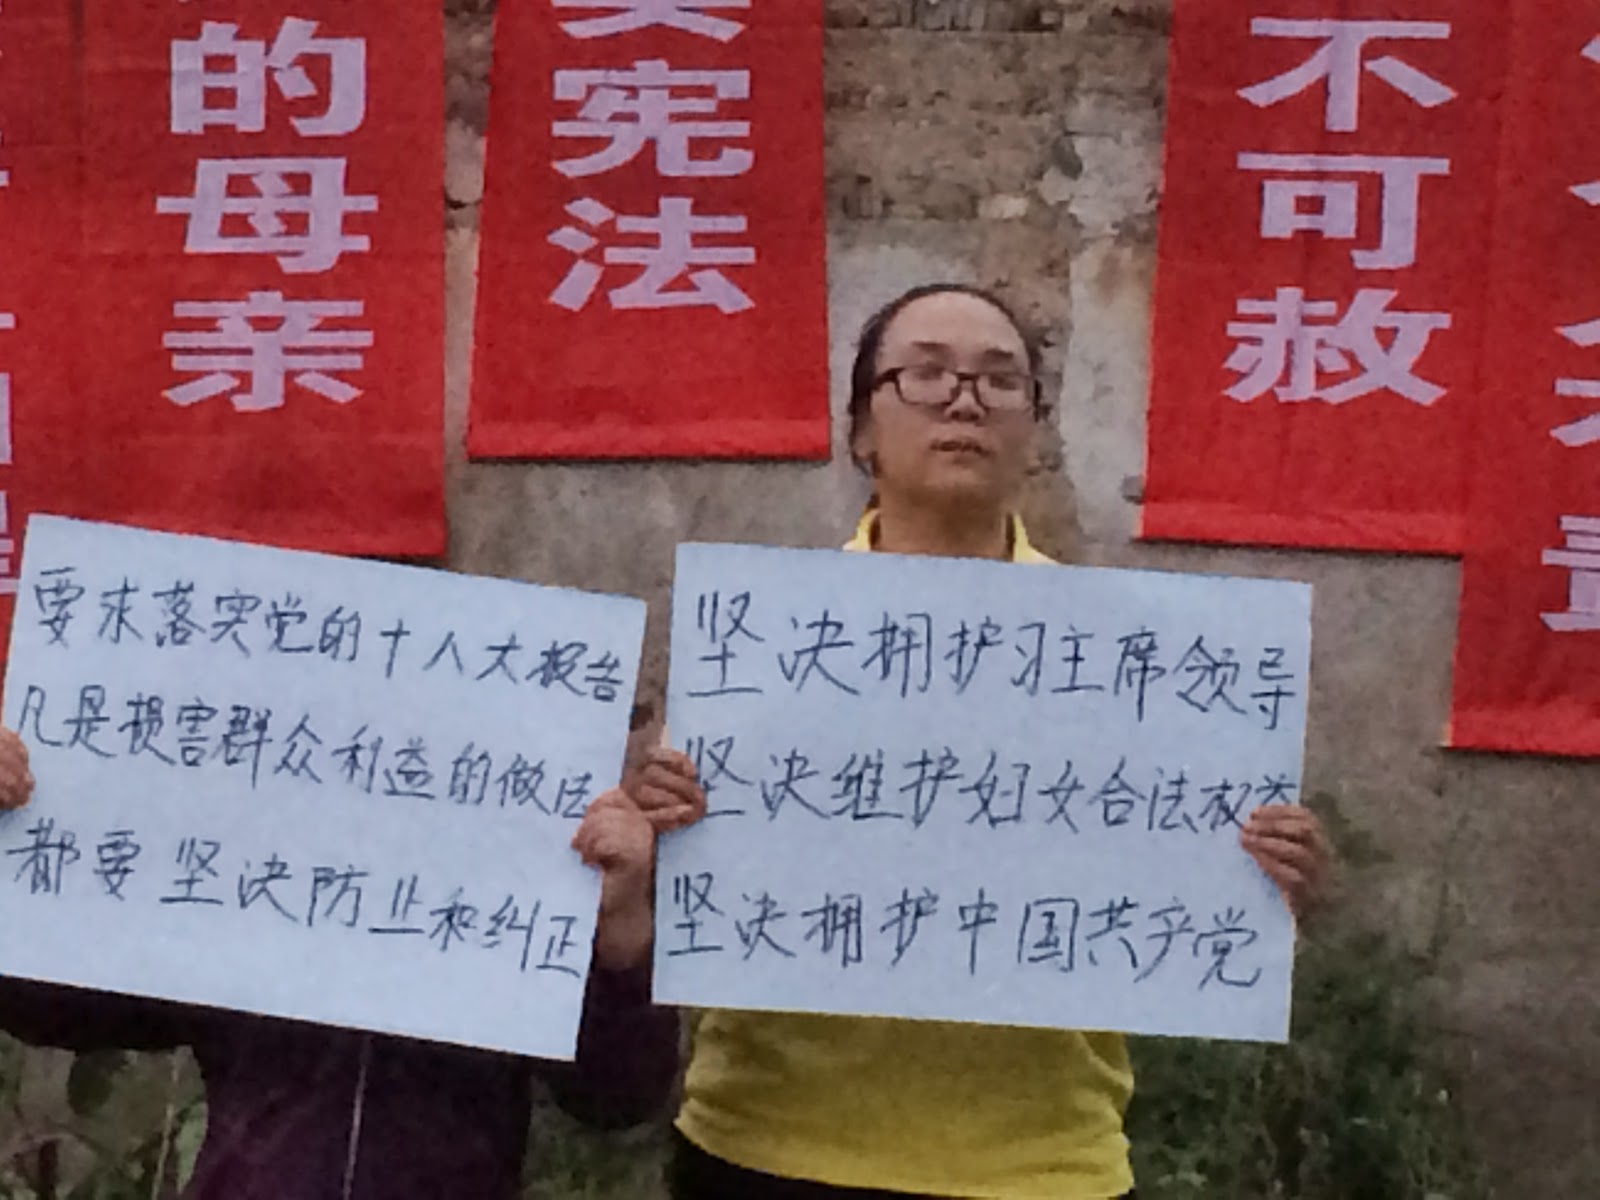 的母亲
宪法
不可赦
要求落实党的十八大报告
凡是损害群众利益的做法
都要坚决防止和纠正
坚决拥护习主席领导
坚决维护妇女合法权益
坚决拥护中国共产党